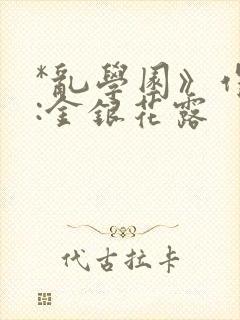 *亂學園》作
:金銀花露
代古拉卡